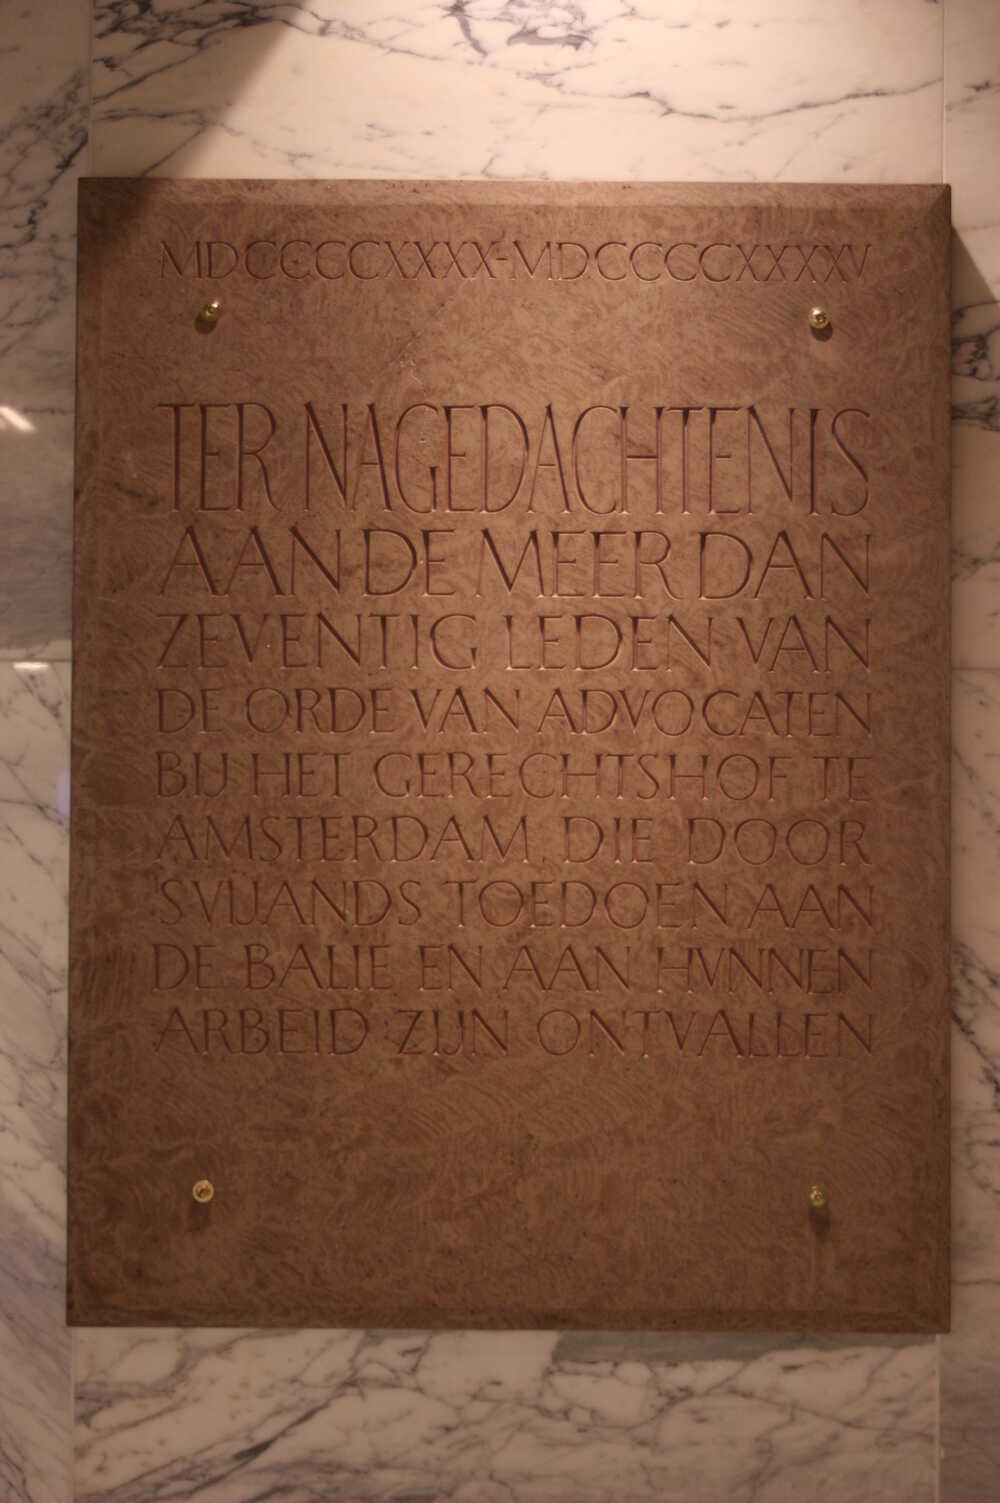 MDCCCCXXXX-MDCCCCXXXXV
TER NAGEDACHTENIS
AAN DE MEER DAN
ZEVENTIG LEDEN VAN
DE ORDE VAN ADVOCATEN
BIJ HET GERECHTSHOF TE
AMSTERDAM, DIE DOOR
'SVIJANDS TOEDOEN AAN
DE BALIE EN AAN HVNNEN
ARBEID ZIJN ONTVALLEN